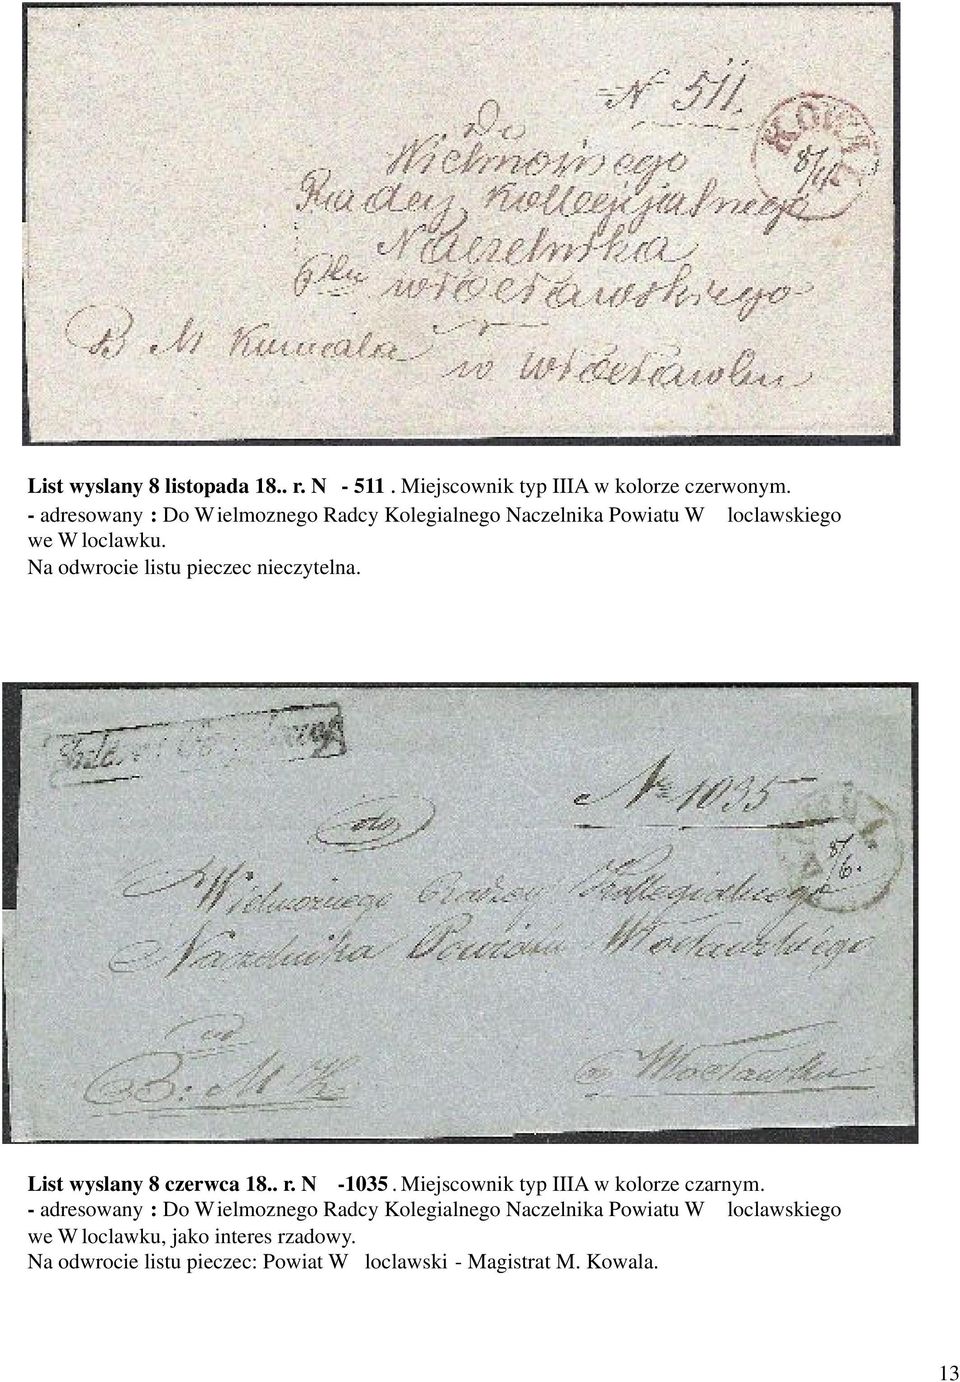 N 511.
Do
Wielmożnego
Radcy Kollegijalnego
Naczelnika
Ptu włocławskiego
B M Kowala
w włocławku
KOWAL
8/11
List wyslany 8 listopada 18.. r. N - 511 . Miejscownik typ IIIA w kolorze czerwonym.
- adresowany : Do Wielmoznego Radcy Kolegialnego Naczelnika Powiatu W loclawskiego
we W loclawku.
Na odwrocie listu pieczec nieczytelna.
№ 1035
do
8/6.
Wielmożnego Radzcy Kollegialnego
Naczelnika Powiatu Włocławskiego
od
B: M K.
w Włocławku
List wyslany 8 czerwca 18.. r. N -1035 . Miejscownik typ IIIA w kolorze czarnym.
- adresowany : Do Wielmoznego Radcy Kolegialnego Naczelnika Powiatu W loclawskiego
we W loclawku, jako interes rzadowy.
Na odwrocie listu pieczec: Powiat W loclawski - Magistrat M. Kowala.
13